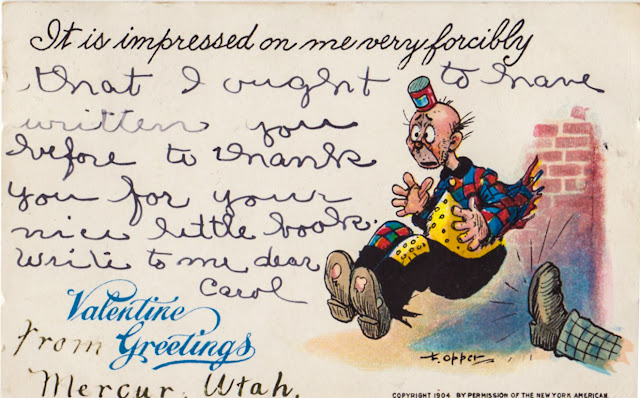 It is impressed on me very forcibly
that I ought to have
written you
before to thank
you for your
nice little book.
Write to me dear
Carol
Valentine
From Greetings
Mercur, Utah.
F. Opper
COPYRIGHT 1904 BY PERMISSION OF THE NEW YORK AMERICAN.